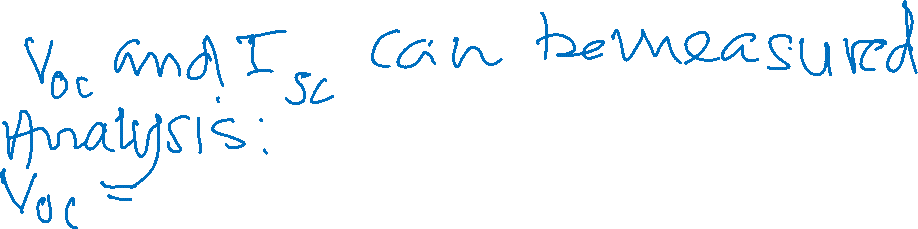 Voc and Isc can be measured
Analysis:
Voc =